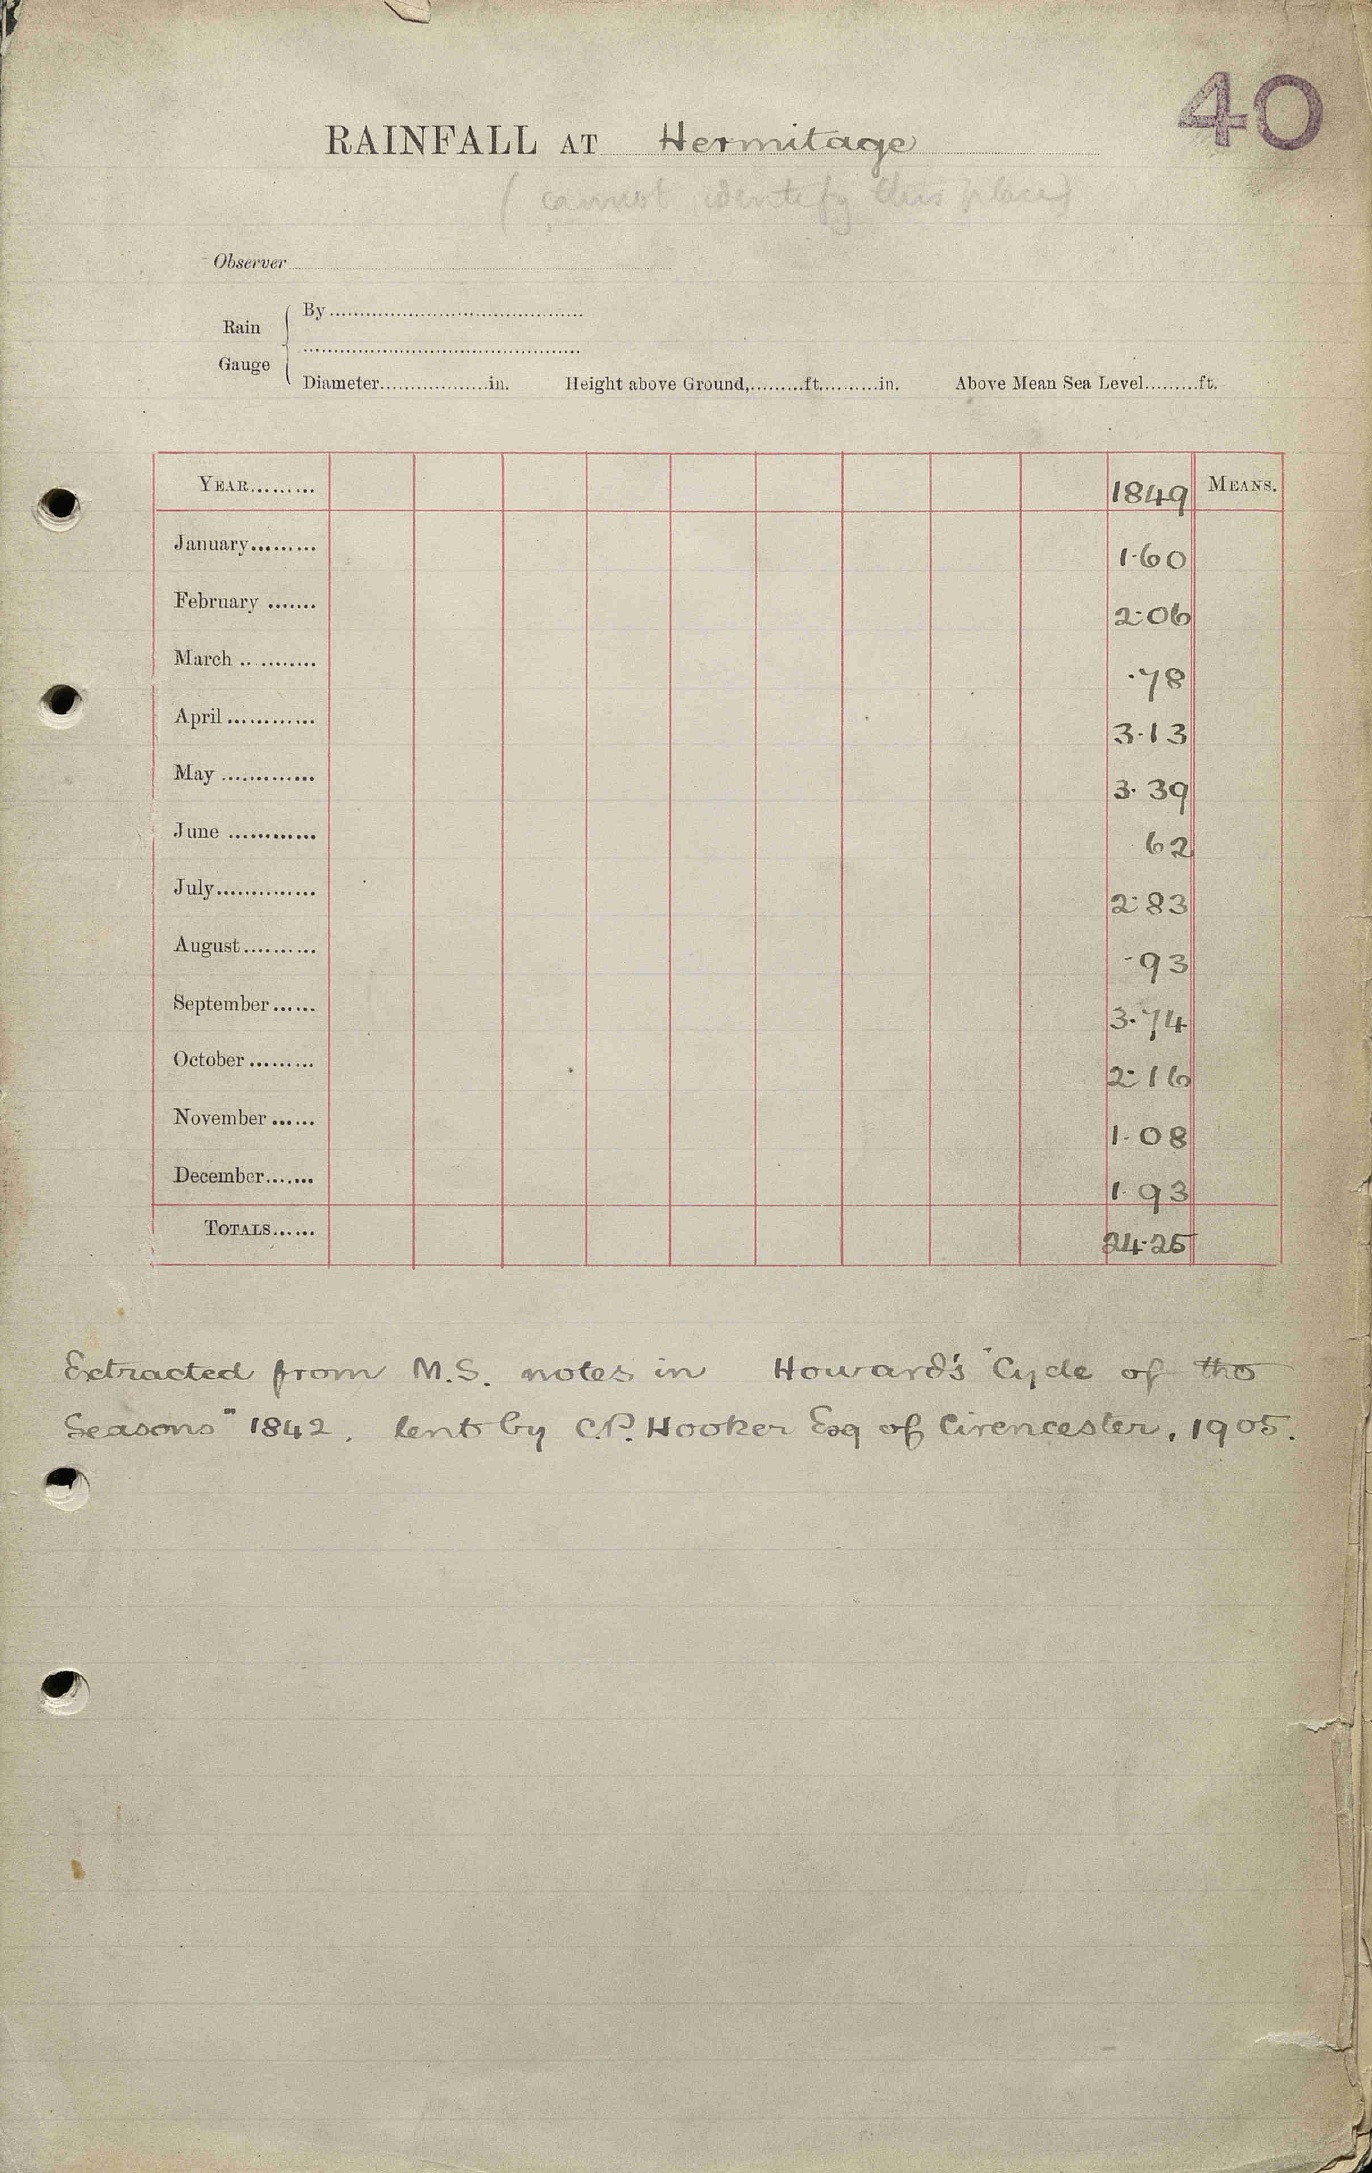 40
RAINFALL AT Hermitage
(cannot identify this place)
Observer
Rain Gauge
By
Diameter in. Height above Ground, ft. in. Above Mean Sea Level ft.
YEAR 1849 MEANS.
January 1.60
February 2.06
March .78
April 3.13
May 3.39
June 62
July 2.83
August .93
September 3.74
October 2.16
November 1.08
December 1.93
TOTALS 24.25
Extracted from M.S. notes in Howard's "Cycle of the
Seasons" 1842. lent by C.P. Hooker Esq of Cirencester, 1905.